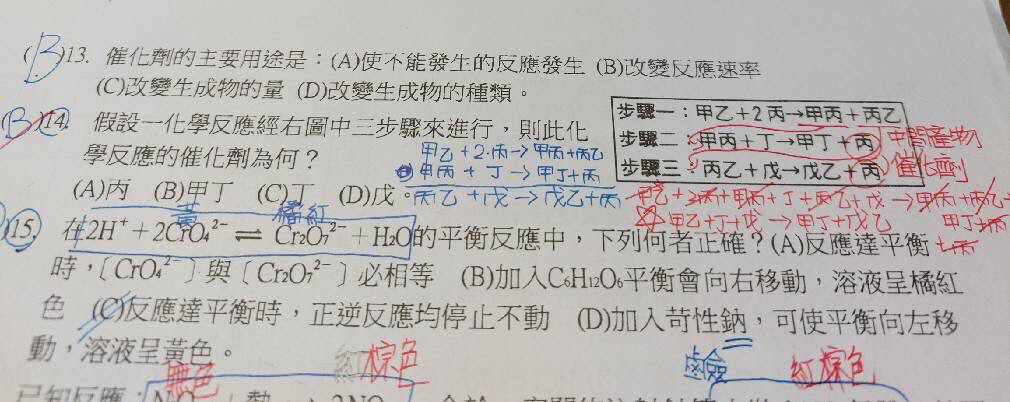 (B)13. 催化劑的主要用途是：(A)使不能發生的反應發生 (B)改變反應速率
(C)改變生成物的量 (D)改變生成物的種類。
(B)14. 假設一化學反應經右圖中三步驟來進行，則此化
學反應的催化劑為何？
(A)丙 (B)甲丁 (C)丁 (D)戊。
步驟一：甲乙＋2丙→甲丙＋丙乙
步驟二：甲丙＋丁→甲丁＋丙
步驟三：丙乙＋戊→戊乙＋丙
中間產物
催化劑
甲乙+2.丙→甲丙+丙乙
甲丙+丁→甲丁+丙
丙乙+戊→戊乙+丙
甲乙+2丙+甲丙+丁+丙乙+戊→甲丙+丙乙+
甲丁+丙
甲乙+丁+戊→甲丁+戊乙
黃 橘紅
15. 在2H⁺＋2CrO₄²⁻ ⇌ Cr₂O₇²⁻＋H₂O的平衡反應中，下列何者正確？(A)反應達平衡
時，〔CrO₄²⁻〕與〔Cr₂O₇²⁻〕必相等 (B)加入C₆H₁₂O₆平衡會向右移動，溶液呈橘紅
色 (C)反應達平衡時，正逆反應均停止不動 (D)加入苛性鈉，可使平衡向左移
動，溶液呈黃色。
無色 紅棕色 鹼 紅棕色
已知反應：